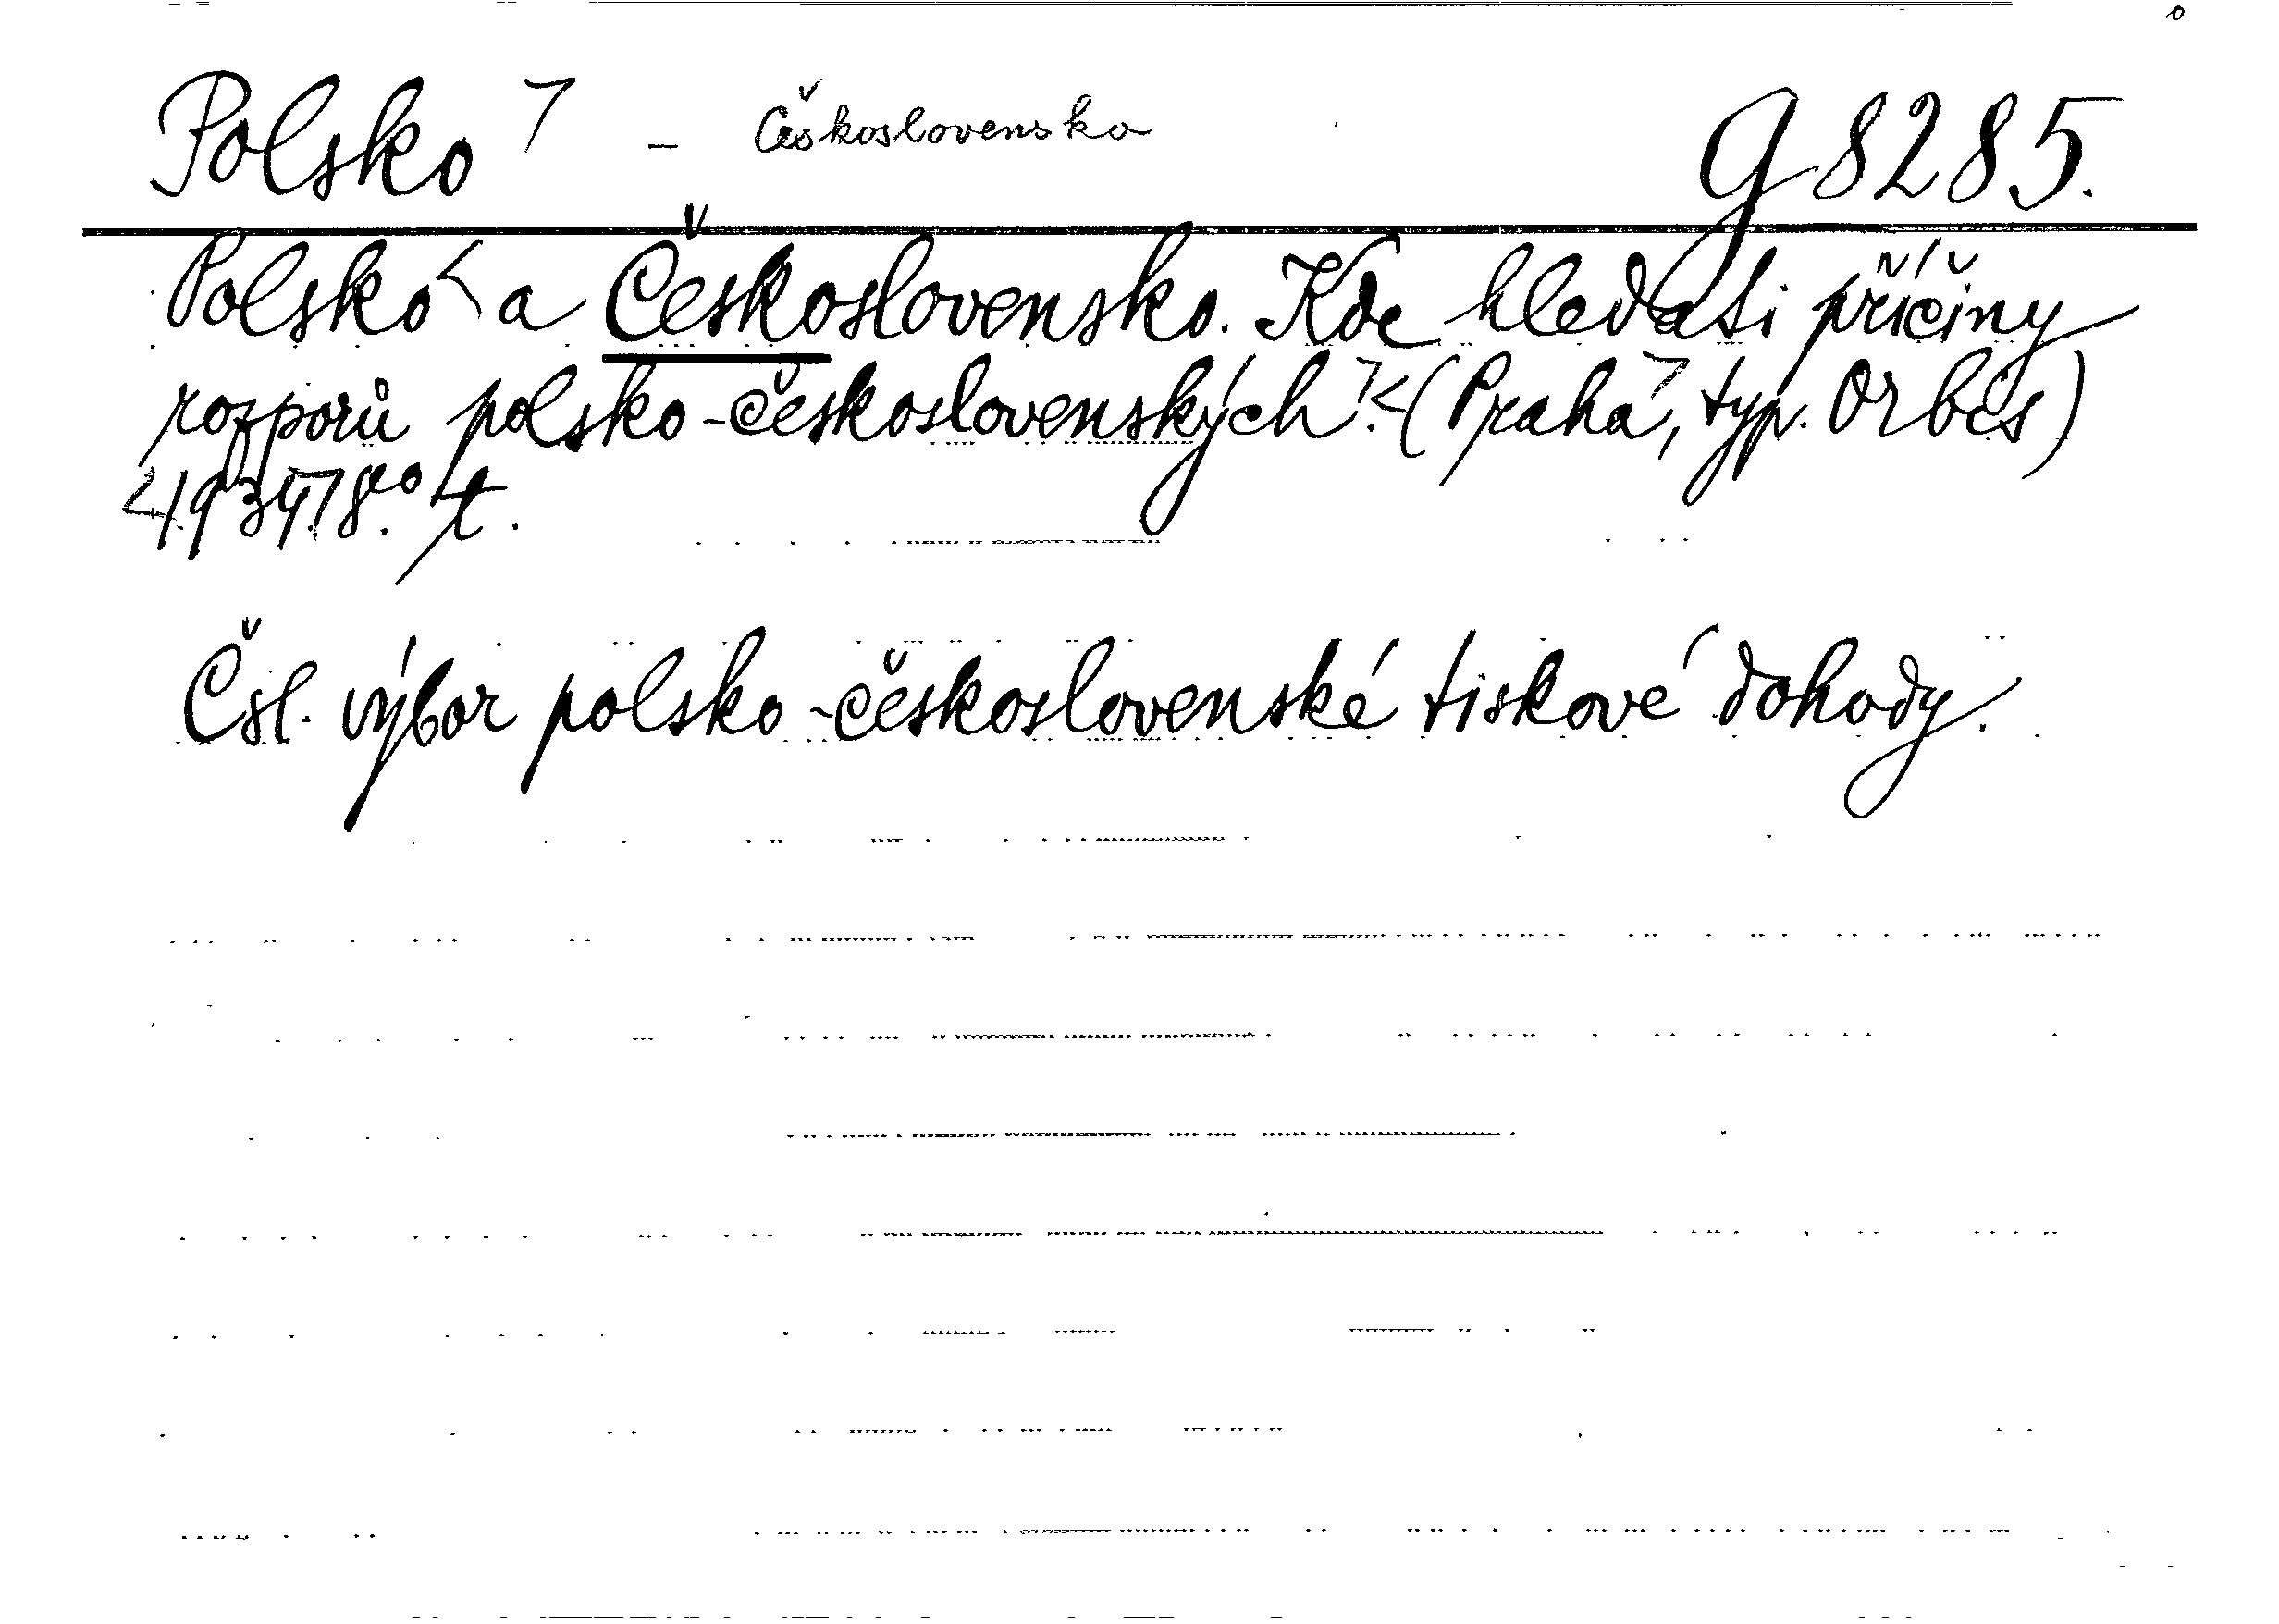 Polsko – Československo g 8285.
Polsko a Československo. Kde hledati příčiny
rozporů polsko-československých? (Praha, typ. Orbis)
1934. 8° t.
Čsl. výbor polsko-československé tiskové dohody.